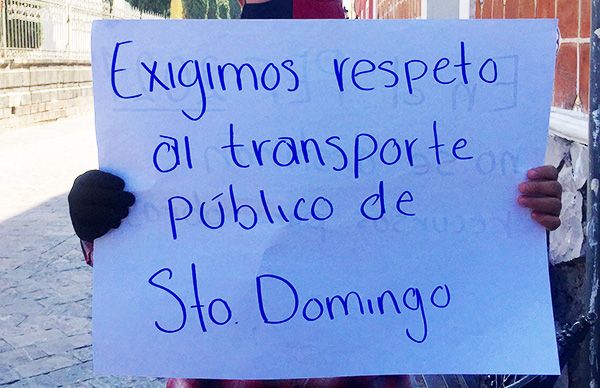 Exigimos respeto
al transporte
público de
Sto. Domingo